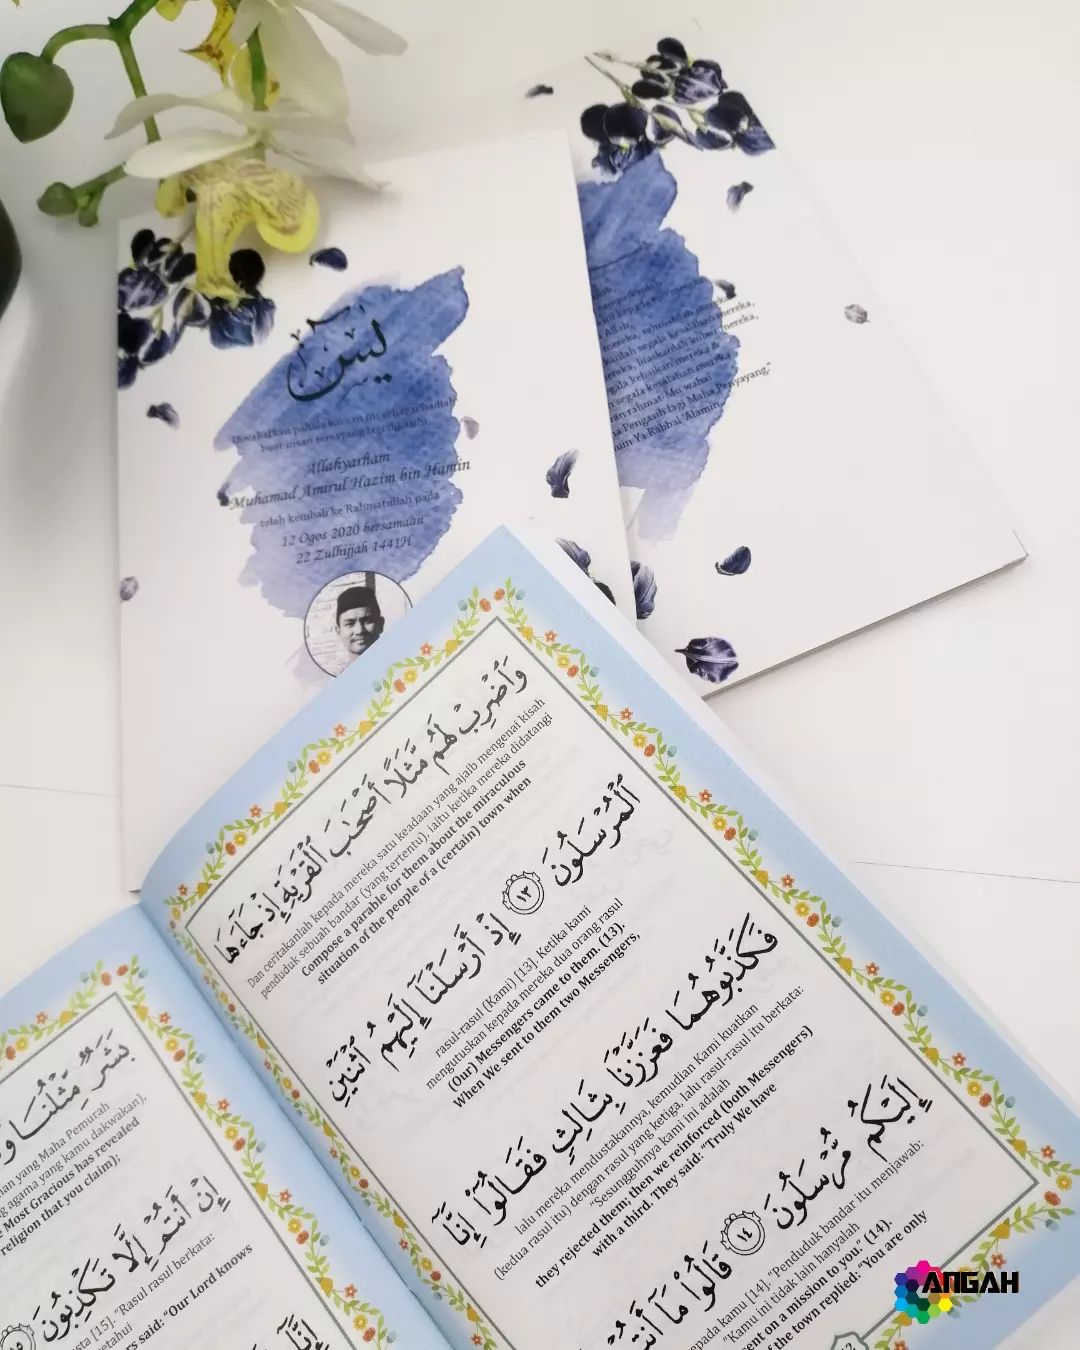 يس
Diwakafkan pahala bacaan ini sebagai hadiah
buat insan tersayang lagi dikasihi
Allahyarham
Muhamad Amirul Hazim bin Hamin
telah kembali ke Rahmatullah pada
12 Ogos 2020 bersamaan
22 Zulhijjah 1441H
kepada
Allah,
mereka, rahmatilah mereka,
segala kesalahan mereka,
mereka, luaskanlah kubur mereka,
segala kebaikan mereka &
segala kesalahan mereka
rahmat-Mu wahai
Pengasih lagi Maha Penyayang."
Ya Rabbal 'Alamin
وَٱضْرِبْ لَهُم مَّثَلًا أَصْحَٰبَ ٱلْقَرْيَةِ إِذْ جَآءَهَا
Dan ceritakanlah kepada mereka satu keadaan yang ajaib mengenai kisah
penduduk sebuah bandar (yang tertentu), iaitu ketika mereka didatangi
Compose a parable for them about the miraculous
situation of the people of a (certain) town when
ٱلْمُرْسَلُونَ ١٣ إِذْ أَرْسَلْنَآ إِلَيْهِمُ ٱثْنَيْنِ
rasul-rasul (Kami) [13]. Ketika kami
mengutuskan kepada mereka dua orang rasul
(Our) Messengers came to them. (13).
When We sent to them two Messengers,
فَكَذَّبُوهُمَا فَعَزَّزْنَا بِثَالِثٍ فَقَالُوٓا۟ إِنَّآ
lalu mereka mendustakannya, kemudian Kami kuatkan
(kedua rasul itu) dengan rasul yang ketiga, lalu rasul-rasul itu berkata:
"Sesungguhnya kami ini adalah
they rejected them; then we reinforced (both Messengers)
with a third. They said: "Truly We have
إِلَيْكُم مُّرْسَلُونَ ١٤ قَالُوا۟ مَآ أَنتُمْ
kepada kamu [14]. "Penduduk bandar itu menjawab:
"Kamu ini tidak lain hanyalah
sent on a mission to you." (14).
of the town replied: "You are only
بَشَرٌ مِّثْلُنَا
yang Maha Pemurah
agama yang kamu dakwakan),
Most Gracious has revealed
religion that you claim);
إِنْ أَنتُمْ إِلَّا تَكْذِبُونَ ١٥
[15]. "Rasul rasul berkata:
said: "Our Lord knows
إِنَّآ
12
ANGAH